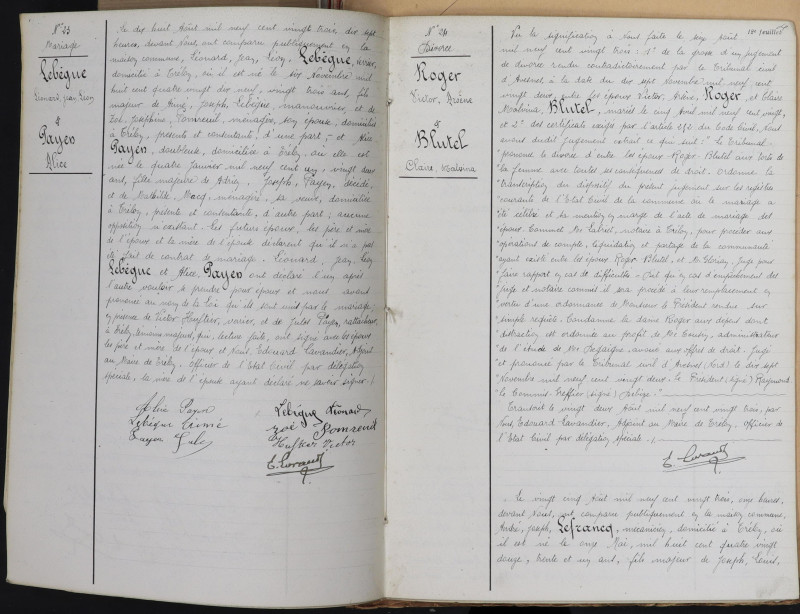 N° 23
Mariage
Lebègue
Léonard, Jean, Léon
&
Payen
Alice
Le dix huit Août mil neuf cent vingt trois, dix sept
heures, devant nous ont comparu publiquement en la
maison commune, Léonard, Jean, Léon, Lebègue,
domicilié à Trélon, où il est né le six Novembre mil
huit cent quatre vingt dix neuf, vingt trois ans, fils
majeur de Aimé, Joseph, Lebègue, manouvrier, et de
Zoé, Joséphine, ménagère, son épouse, domiciliés
à Trélon, présents et consentants, d'une part; et Alice
Payen, doubleuse, domiciliée à Trélon, où elle est
née le quatre Janvier mil neuf cent un, vingt deux
ans, fille majeure de Adrien, Joseph, Payen, décédé,
et de Mathilde, Macq, ménagère, sa veuve, domiciliée
à Trélon, présente et consentante, d'autre part; aucune
opposition n'existant. Les futurs époux, les père et mère
de l'époux et la mère de l'épouse déclarent qu'il n'a pas
été fait de contrat de mariage. Léonard, Jean, Léon
Lebègue et Alice Payen ont déclaré l'un après
l'autre vouloir se prendre pour époux et nous avons
prononcé au nom de la Loi qu'ils sont unis par le mariage;
en présence de Victor Huftier, et de Jules Payen, rattacheur,
à Trélon, témoins majeurs, qui, lecture faite, ont signé avec les époux
les père et mère de l'époux et Nous, Edouard Lavandier, Adjoint
au Maire de Trélon, Officier de l'Etat Civil par délégation
spéciale, la mère de l'épouse ayant déclaré ne savoir signer.
Alice Payen
Lebègue Léonard
Lebègue Aimé
Zoé
Payen Jules
Huftier Victor
N° 24
Divorce
Roger
Victor, Arsène
&
Blutel
Claire, Malvina
Vu la signification à nous faite le
mil neuf cent vingt trois: 1° de la grosse d'un jugement
de divorce rendu contradictoirement par le Tribunal civil
d'Avesnes à la date du dix sept Novembre mil neuf cent
vingt deux entre les époux Victor, Arsène, Roger et Claire
Malvina, Blutel, mariés le cinq Avril mil neuf cent vingt,
et 2° des certificats exigés par l'article 252 du Code Civil, nous
avons dudit jugement extrait ce qui suit: "Le Tribunal
"prononce le divorce d'entre les époux Roger-Blutel aux torts de
"la femme avec toutes ses conséquences de droit. Ordonne la
"transcription du dispositif du présent jugement sur les registres
"courants de l'Etat Civil de la commune où le mariage a
"été célébré et sa mention en marge de l'acte de mariage des
"époux. Commet Me notaire à Trélon, pour procéder aux
"opérations de compte, liquidation et partage de la communauté
"ayant existé entre les époux Roger-Blutel, et Mr Juge pour
"faire rapport en cas de difficultés. Dit qu'en cas d'empêchement des
"juge et notaire commis il sera procédé à leur remplacement en
"vertu d'une ordonnance de Monsieur le Président rendue sur
"simple requête. Condamne la dame Roger aux dépens dont
"distraction est ordonnée au profit de Me administrateur
"de l'étude de Me avoué aux offres de droit. Jugé
"et prononcé par le Tribunal civil d'Avesnes (Nord) le dix sept
"Novembre mil neuf cent vingt deux. Le Président (signé) Raymond
"le Commis Greffier (signé)
Transcrit le vingt deux Août mil neuf cent vingt trois, par
Nous, Edouard Lavandier, Adjoint au Maire de Trélon, Officier de
l'Etat Civil par délégation spéciale.
Le vingt cinq Août mil neuf cent vingt trois, onze heures,
devant Nous, ont comparu publiquement en la maison commune,
André, Joseph, Lefrancq, mécanicien, domicilié à Trélon, où
il est né le onze Mai, mil huit cent quatre vingt
douze, trente et un ans, fils majeur de Joseph, Louis,